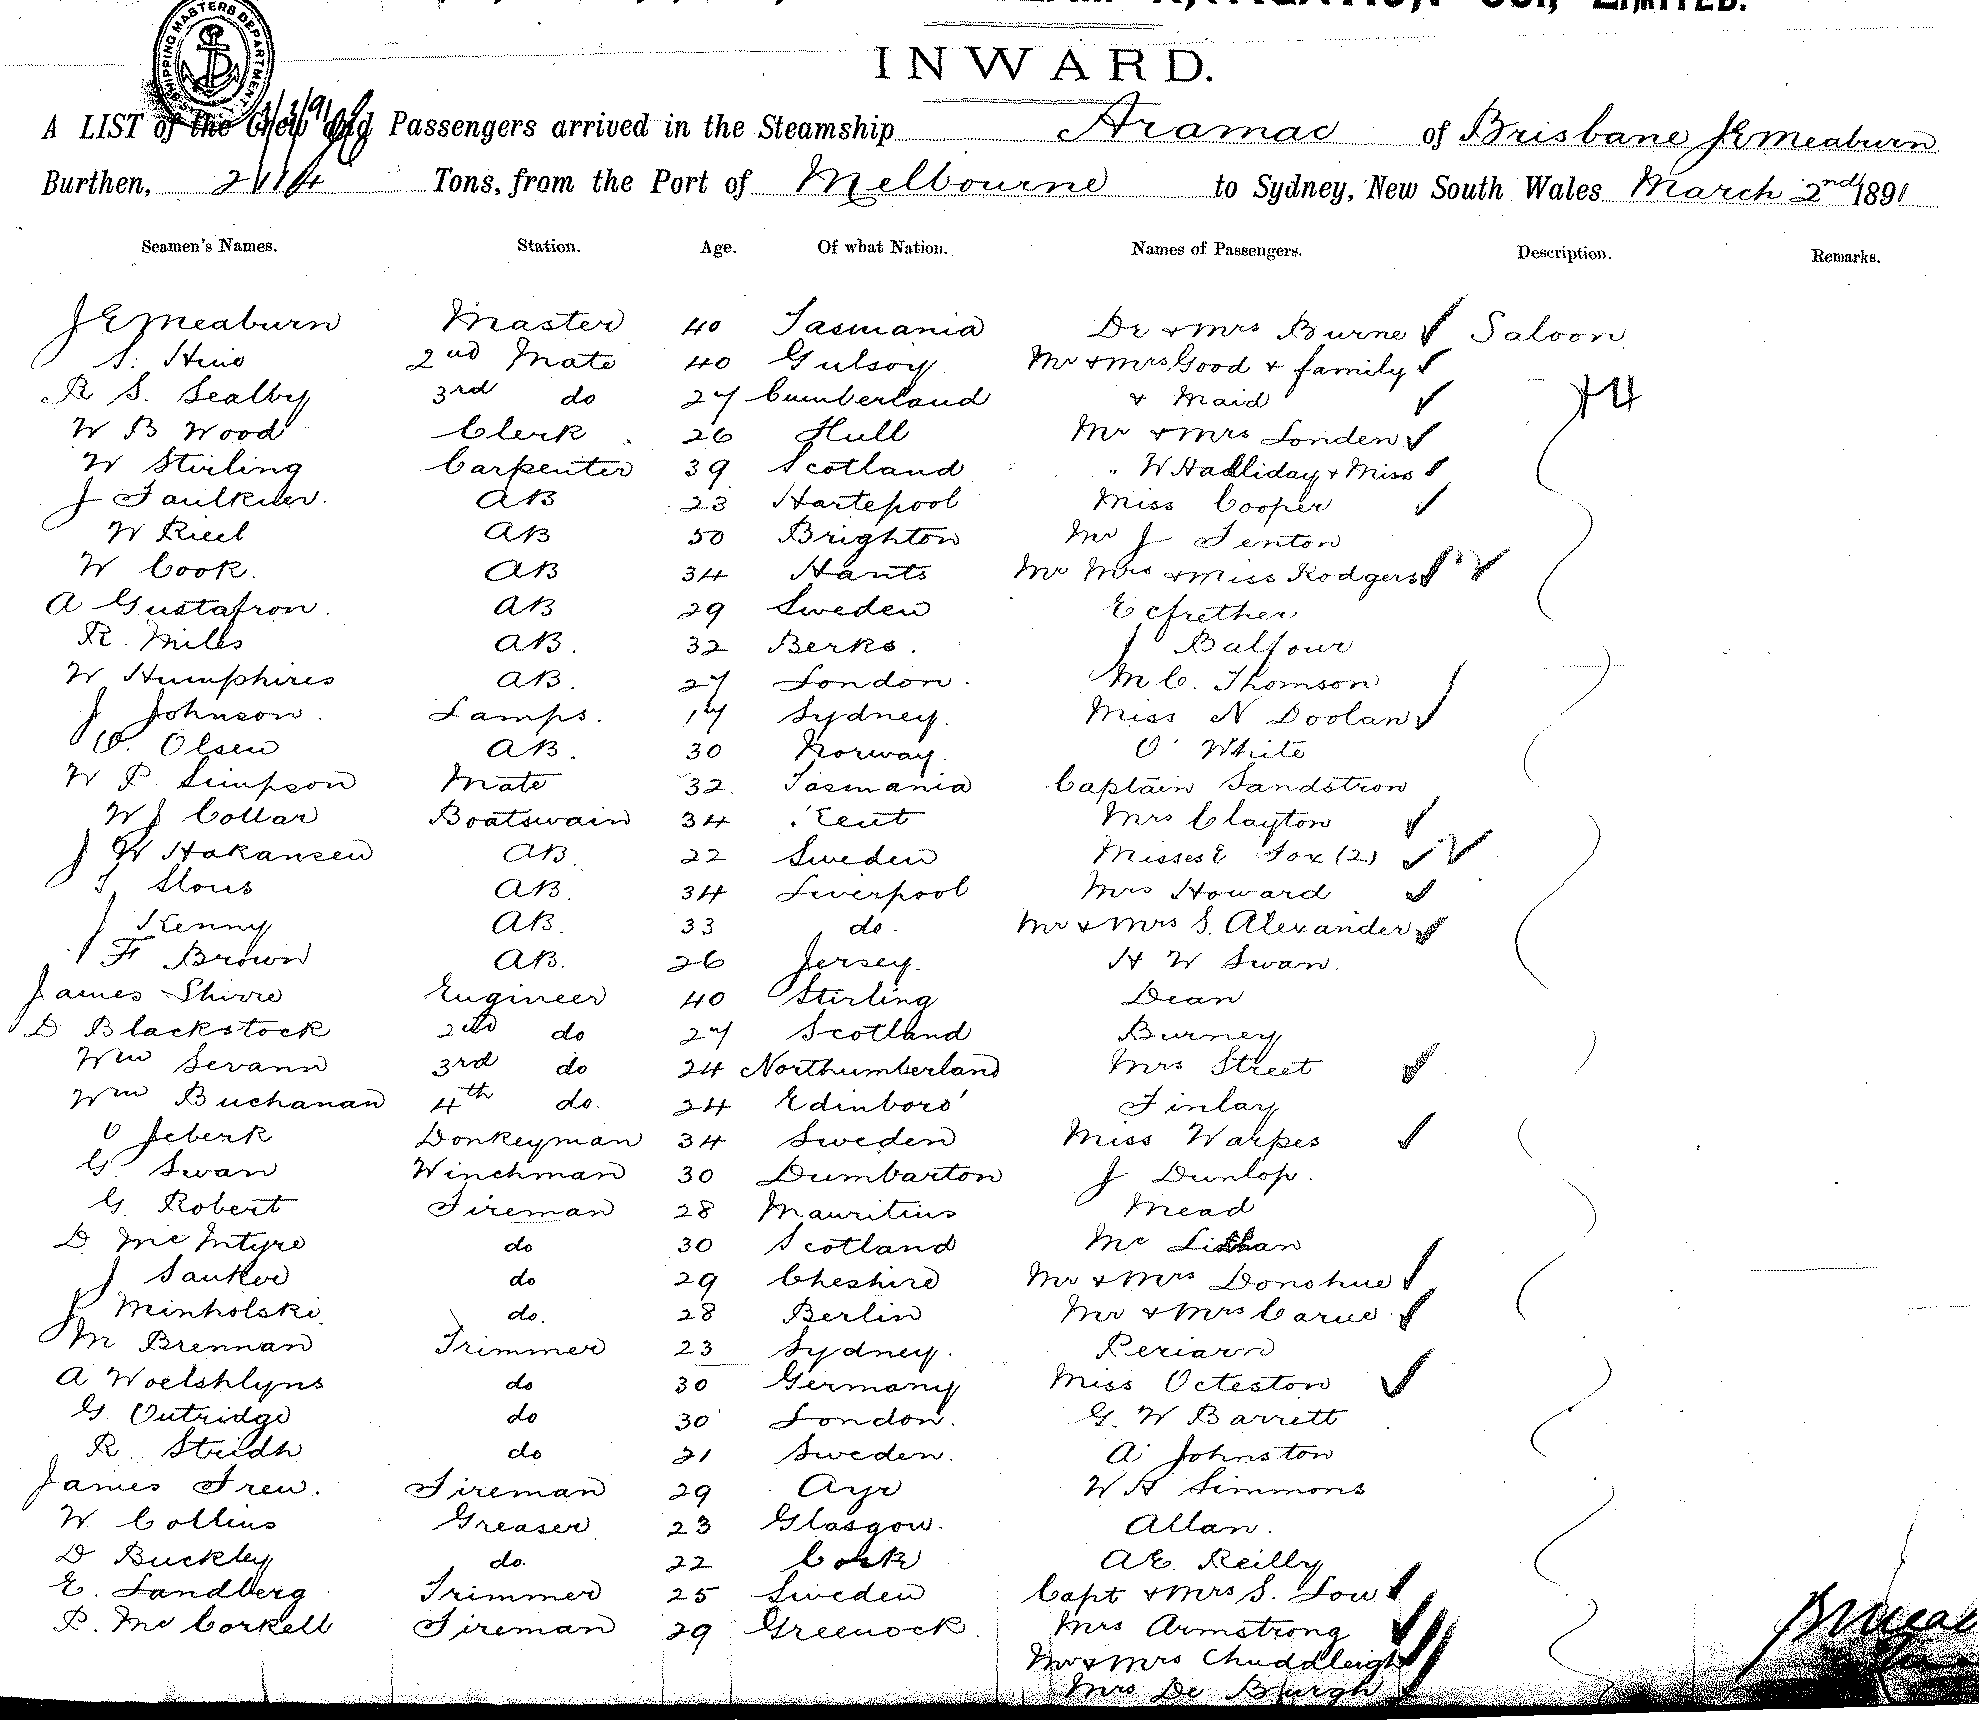 LIMITED.
INWARD.
SHIPPING MASTERS DEPARTMENT
A LIST of the Crew and Passengers arrived in the Steamship Aramac of Brisbane J E Meaburn
Burthen, 2114 Tons, from the Port of Melbourne to Sydney, New South Wales March 2nd 1891
Seamen's Names. Station. Age. Of what Nation. Names of Passengers. Description. Remarks.
J E Meaburn Master 40 Tasmania Dr & Mrs Burne Saloon
S. Hino 2nd Mate 40 Gulsoy Mr & Mrs Good & family
R S. Sealby 3rd do 27 Cumberland & Maid 14
W B Wood Clerk 26 Hull Mr & Mrs Londen
W Stirling Carpenter 39 Scotland " W Halliday & Miss
J Faulkner. AB 23 Hartepool Miss Cooper
W Rieel AB 50 Brighton Mr J Fenton
W Cook. AB 34 Hants Mr Mrs & Miss Rodgers
A Gustafron. AB 29 Sweden E
R. Miles AB. 32 Berks. J Balfour
W Humphires AB. 27 London. M C. Thomson
J Johnson. Lamps. 17 Sydney. Miss N Doolan
O. Olsen AB. 30 Norway. O' White
W P. Simpson Mate 32. Tasmania Captain Sandstron
W J Collar Boatswain 34 Kent Mrs Clayton
J W Hakansen AB. 22 Sweden Misses E Fox (2)
Slous AB. 34 Liverpool Mrs Howard
J Kenny AB. 33 do. Mr & Mrs S. Alexander
F Brown AB. 26 Jersey. H W Swan.
James Shirre Engineer 40 Stirling Dean
D Blackstock 2nd do 27 Scotland Burney
Wm Sevann 3rd do 24 Northumberland Mrs Street
Wm Buchanan 4th do. 24 Edinboro' Finlay
O Jeberk Donkeyman 34 Sweden Miss Warkes
G. Swan Winchman 30 Dumbarton J Dunlop.
G. Robert Fireman 28 Mauritius Mead
D. McIntyre do 30 Scotland Mc
J Sanker do 29 Cheshire Mr & Mrs Donohue
J Minholski do. 28 Berlin Mr & Mrs Carue
M Brennan Trimmer 23 Sydney. Periarn
A Woelshlyns do 30 Germany Miss Octeston
G. Outridge do 30 London. G. W Barrett
R. Stridh do 21 Sweden. A Johnston
James Frew. Fireman 29 Ayr W H Simmons
W. Collins Greaser 23 Glasgow. Allan.
D Buckley do. 22 Cork A E. Reilly
E. Landberg Trimmer 25 Sweden Capt & Mrs S. Low
P. McCorkell Fireman 29 Greenock. Mrs Armstrong
Mr & Mrs Chuddleigh
Mrs De Burgh